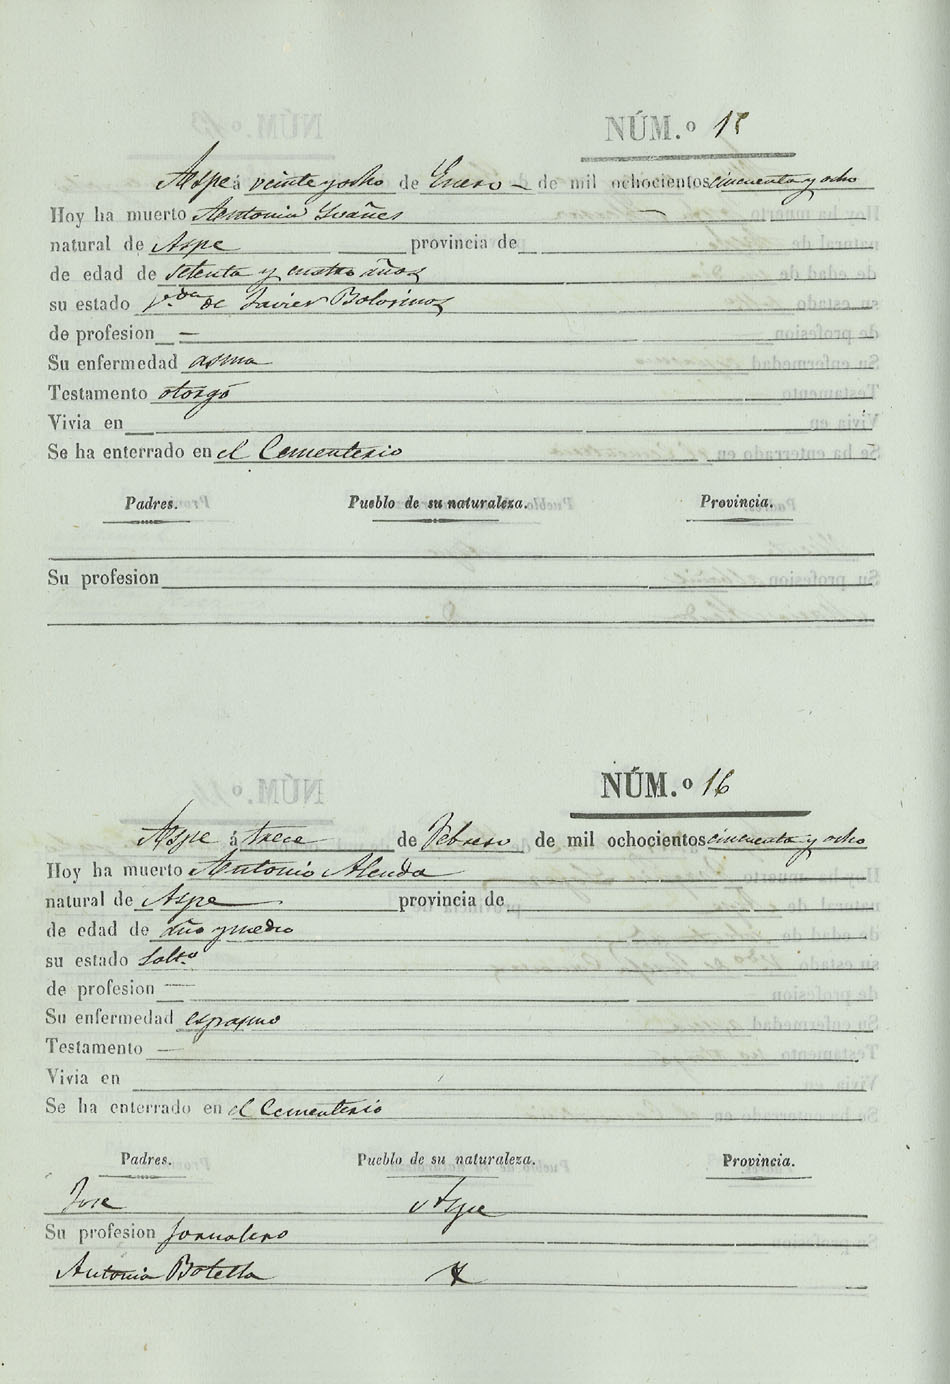 NÚM.º 15
Aspe á veinte y ocho de Enero de mil ochocientos cincuenta y ocho
Hoy ha muerto Antonia Ivañes
natural de Aspe provincia de
de edad de setenta y cuatro años
su estado V.da de Javier Bolorinos
de profesion —
Su enfermedad asma
Testamento otorgó
Vivia en
Se ha enterrado en el Cementerio
Padres. Pueblo de su naturaleza. Provincia.
Su profesion
NÚM.º 16
Aspe á trece de Febrero de mil ochocientos cincuenta y ocho
Hoy ha muerto Antonio Alenda
natural de Aspe provincia de
de edad de año y medio
su estado Solt.o
de profesion —
Su enfermedad espasmo
Testamento —
Vivia en
Se ha enterrado en el Cementerio
Padres. Pueblo de su naturaleza. Provincia.
Jose Aspe
Su profesion Jornalero
Antonia Botella